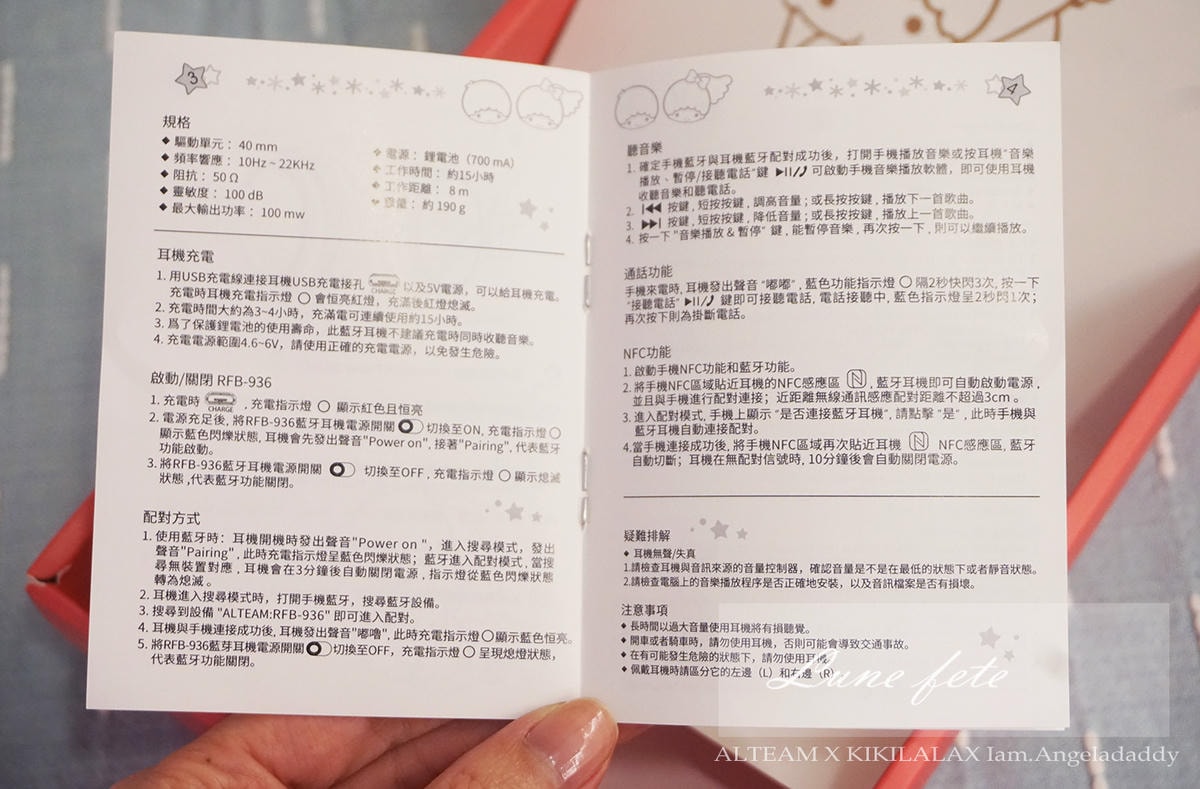 3
規格
◆ 驅動單元： 40 mm
◆ 頻率響應： 10Hz ~ 22KHz
◆ 阻抗： 50 Ω
◆ 靈敏度： 100 dB
◆ 最大輸出功率： 100 mw
◆ 電源： 鋰電池（700 mA）
◆ 工作時間： 約15小時
◆ 工作距離： 8 m
◆ 重量： 約 190 g
耳機充電
1. 用USB充電線連接耳機USB充電接孔 CHARGE 以及5V電源，可以給耳機充電。
充電時耳機充電指示燈 ○ 會恆亮紅燈，充滿後紅燈熄滅。
2. 充電時間大約為3~4小時，充滿電可連續使用約15小時。
3. 爲了保護鋰電池的使用壽命，此藍牙耳機不建議充電時同時收聽音樂。
4. 充電電源範圍4.6~6V，請使用正確的充電電源，以免發生危險。
啟動/關閉 RFB-936
1. 充電時 CHARGE , 充電指示燈 ○ 顯示紅色且恆亮
2. 電源充足後, 將RFB-936藍牙耳機電源開關 切換至ON, 充電指示燈 ○
顯示藍色閃爍狀態, 耳機會先發出聲音"Power on", 接著"Pairing", 代表藍牙
功能啟動。
3. 將RFB-936藍牙耳機電源開關 切換至OFF , 充電指示燈 ○ 顯示熄滅
狀態 ,代表藍牙功能關閉。
配對方式
1. 使用藍牙時：耳機開機時發出聲音"Power on "，進入搜尋模式，發出
聲音"Pairing" , 此時充電指示燈呈藍色閃爍狀態；藍牙進入配對模式 , 當搜
尋無裝置對應 , 耳機會在3分鐘後自動關閉電源 , 指示燈從藍色閃爍狀態
轉為熄滅 。
2. 耳機進入搜尋模式時，打開手機藍牙，搜尋藍牙設備。
3. 搜尋到設備 "ALTEAM:RFB-936" 即可進入配對。
4. 耳機與手機連接成功後, 耳機發出聲音"嘟嚕", 此時充電指示燈 ○ 顯示藍色恆亮。
5. 將RFB-936藍芽耳機電源開關 切換至OFF，充電指示燈 ○ 呈現熄燈狀態，
代表藍牙功能關閉。
4
聽音樂
1. 確定手機藍牙與耳機藍牙配對成功後，打開手機播放音樂或按耳機"音樂
播放、暫停/接聽電話"鍵 ▶II/ 可啟動手機音樂播放軟體，即可使用耳機
收聽音樂和聽電話。
2. I◀◀ 按鍵 , 短按按鍵 , 調高音量 ; 或長按按鍵 , 播放下一首歌曲。
3. ▶▶I 按鍵 , 短按按鍵 , 降低音量 ; 或長按按鍵 , 播放上一首歌曲。
4. 按一下 "音樂播放 & 暫停" 鍵 , 能暫停音樂 , 再次按一下 , 則可以繼續播放。
通話功能
手機來電時, 耳機發出聲音 "嘟嘟" , 藍色功能指示燈 ○ 隔2秒快閃3次, 按一下
"接聽電話" ▶II/ 鍵即可接聽電話, 電話接聽中, 藍色指示燈呈2秒閃1次；
再次按下則為掛斷電話。
NFC功能
1. 啟動手機NFC功能和藍牙功能。
2. 將手機NFC區域貼近耳機的NFC感應區 , 藍牙耳機即可自動啟動電源 ,
並且與手機進行配對連接；近距離無線通訊感應配對距離不超過3cm 。
3. 進入配對模式, 手機上顯示 "是否連接藍牙耳機" , 請點擊 "是" , 此時手機與
藍牙耳機自動連接配對。
4.當手機連接成功後, 將手機NFC區域再次貼近耳機 NFC感應區, 藍牙
自動切斷；耳機在無配對信號時, 10分鐘後會自動關閉電源。
疑難排解
◆ 耳機無聲/失真
1.請檢查耳機與音訊來源的音量控制器，確認音量是不是在最低的狀態下或者靜音狀態。
2.請檢查電腦上的音樂播放程序是否正確地安裝，以及音訊檔案是否有損壞。
注意事項
◆ 長時間以過大音量使用耳機將有損聽覺。
◆ 開車或者騎車時，請勿使用耳機，否則可能會導致交通事故。
◆ 在有可能發生危險的狀態下，請勿使用耳機
◆ 佩戴耳機時請區分它的左邊（L）和右邊（R）
Lune fete
ALTEAM X KIKILALAX Iam.Angeladaddy